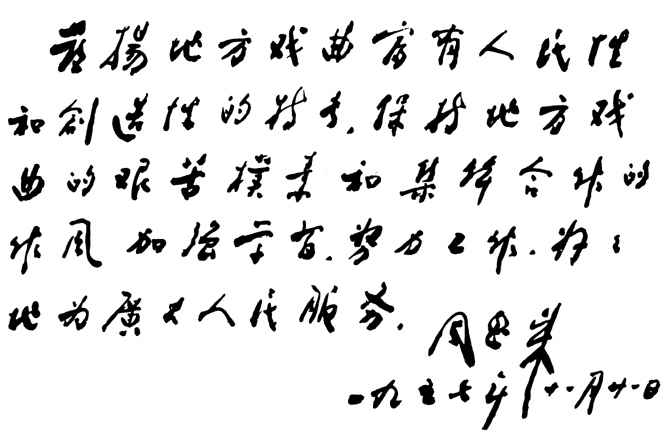 發揚地方戏曲富有人民性
和創造性的特长，保持地方戏
曲的艰苦樸素和集体合作的
作风加强学习，努力工作，好〻
地为廣大人民服务。
周恩来
一九五七年十一月廿一日